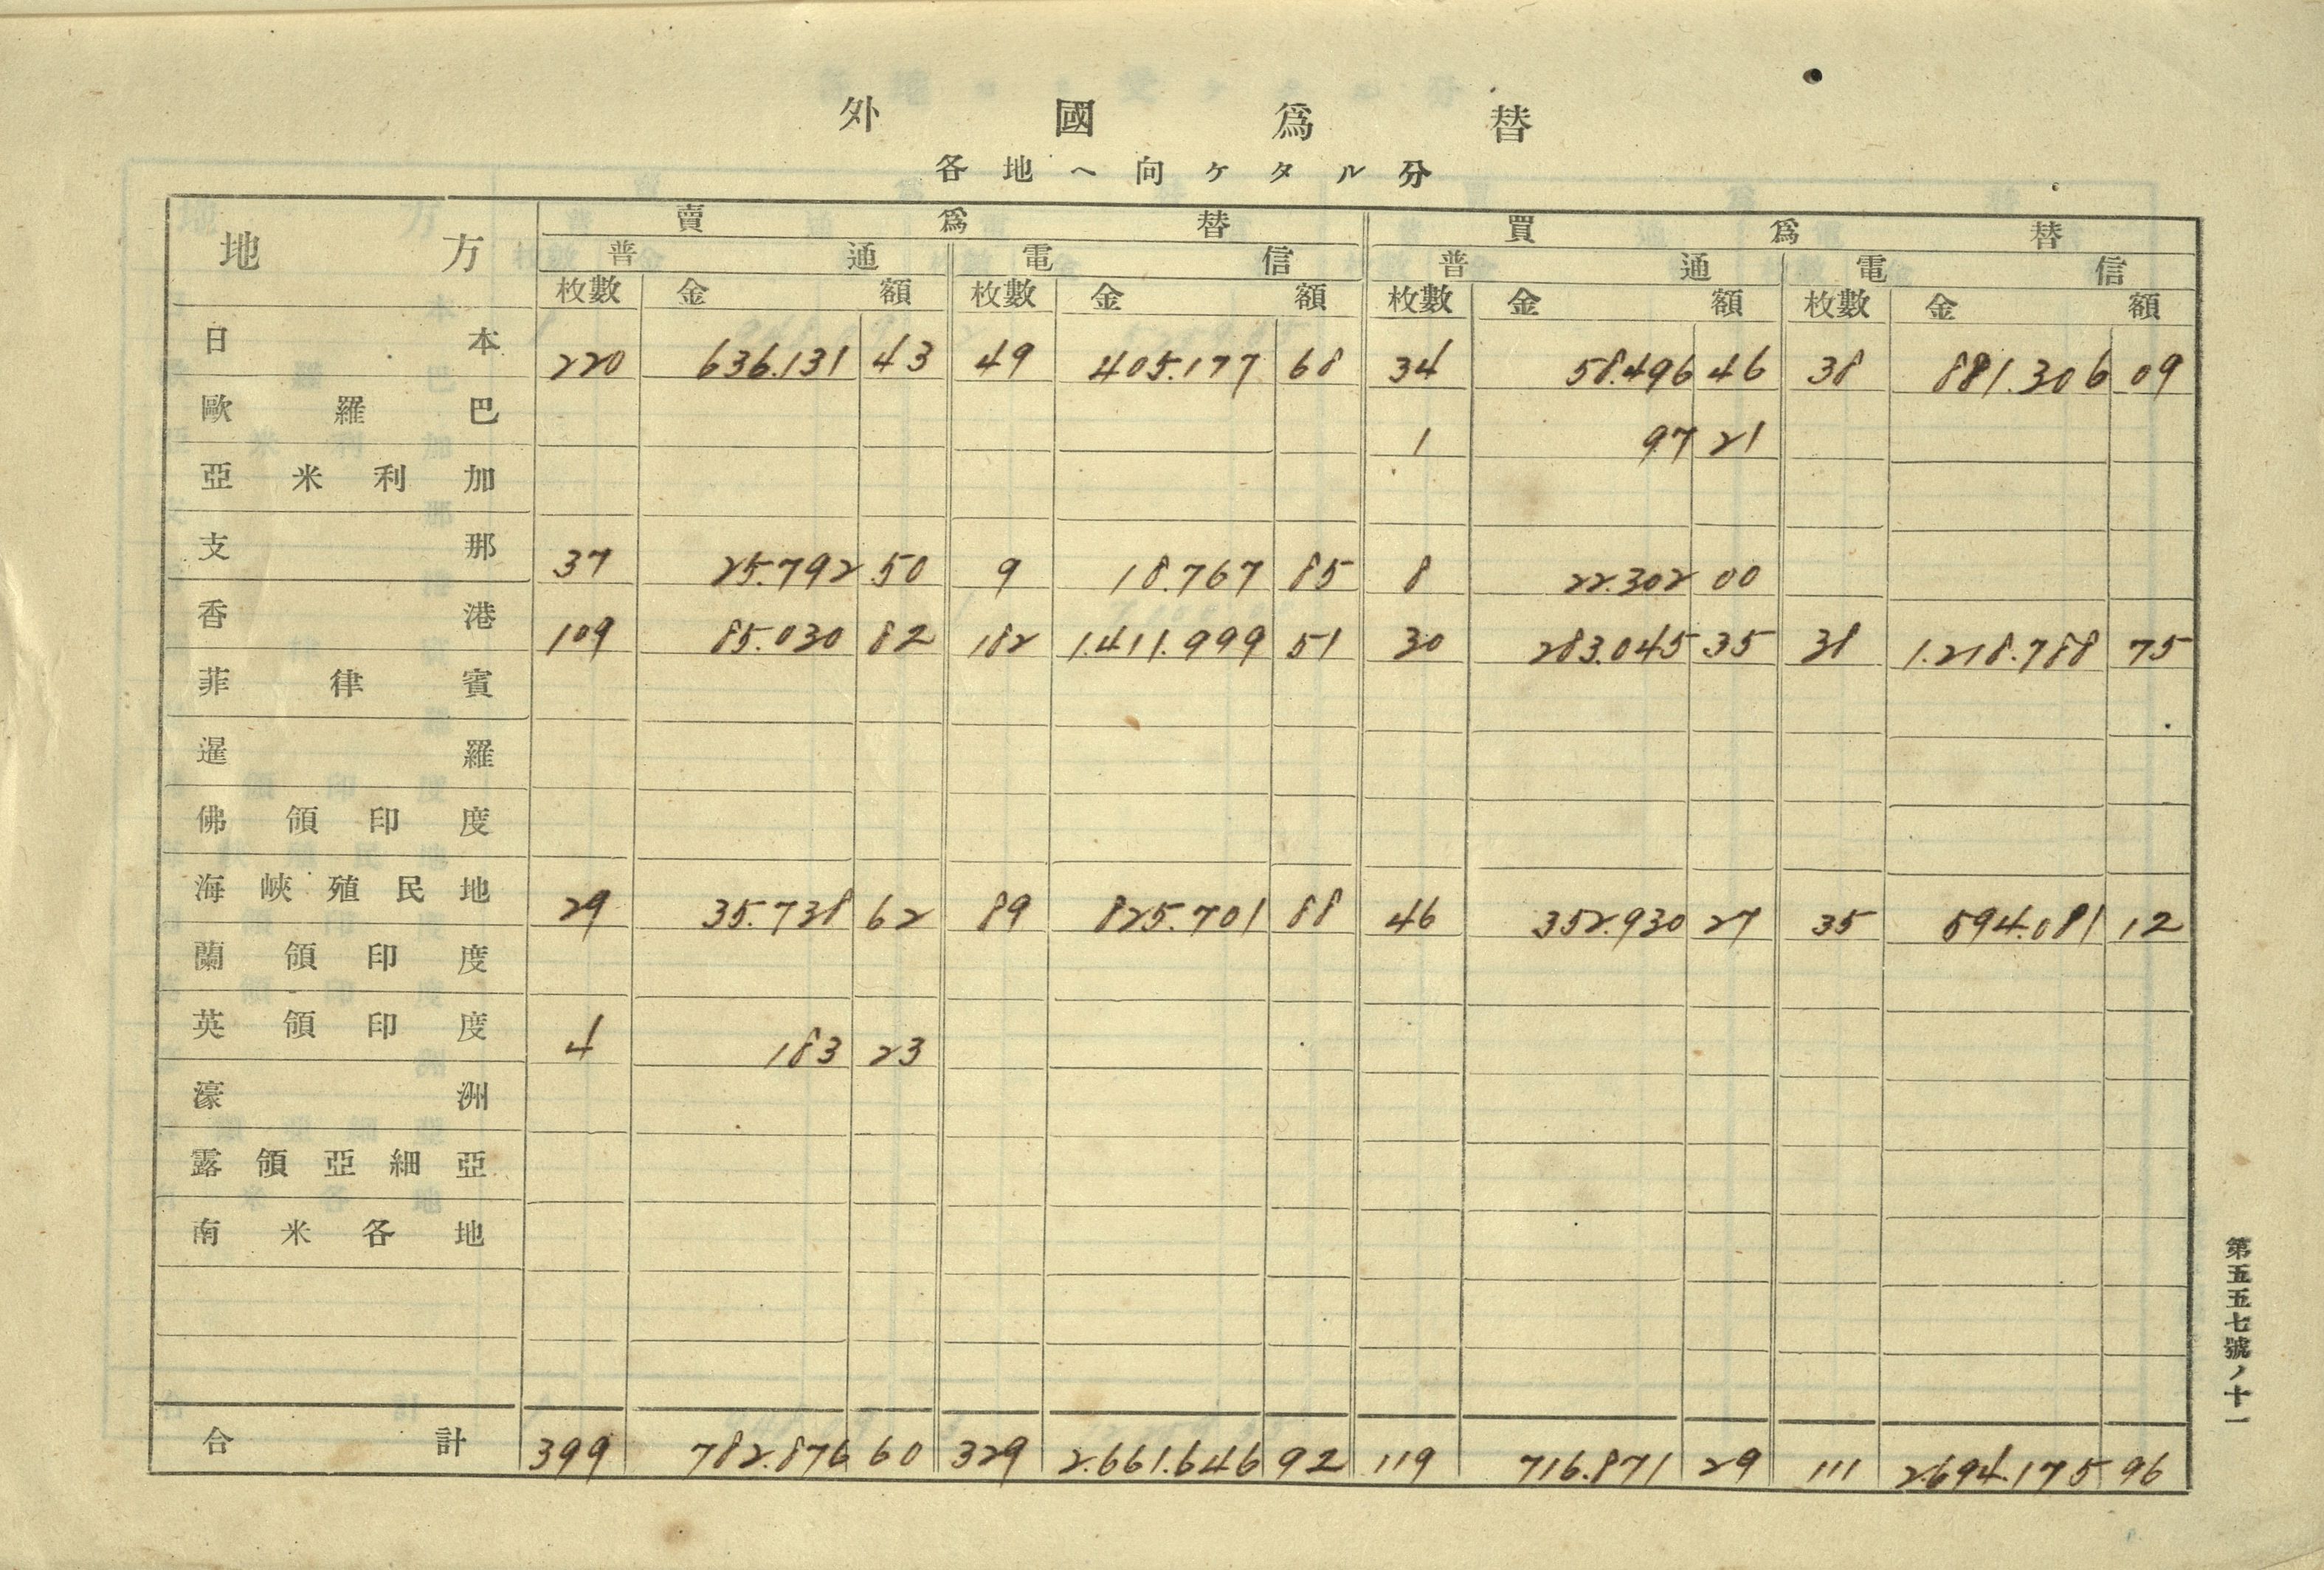 外國爲替
各地ヘ向ケタル分
地方 賣爲替 買爲替
普通 電信 普通 電信
枚數 金額 枚數 金額 枚數 金額 枚數 金額
日本 220 636.131 43 49 405.177 68 34 58.496 46 38 881.306 09
歐羅巴 1 97 21
亞米利加
支那 37 25.792 50 9 18.767 85 8 22.302 00
香港 109 85.030 82 182 1.411.999 51 30 283.045 35 38 1.218.788 75
菲律賓
暹羅
佛領印度
海峽殖民地 29 35.738 62 89 825.701 88 46 352.930 27 35 594.081 12
蘭領印度
英領印度 4 183 23
濠洲
露領亞細亞
南米各地
合計 399 782.876 60 329 2.661.646 92 119 716.871 29 111 2.694.175 96
第五五七號ノ十一